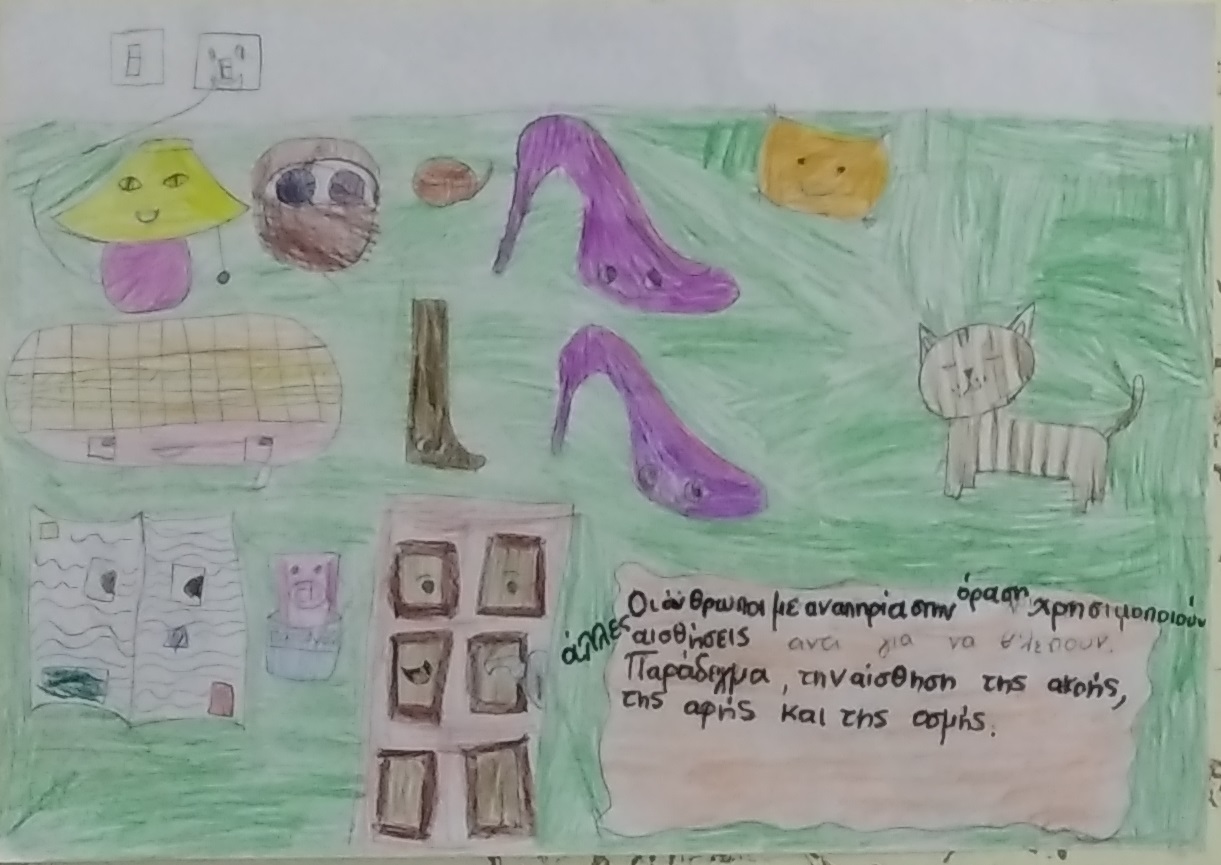 Οι άνθρωποι με αναπηρία στην όραση χρησιμοποιούν
άλλες αισθήσεις αντι για να βλέπουν.
Παράδειγμα, την αίσθηση της ακοής,
της αφής και της οσμής.